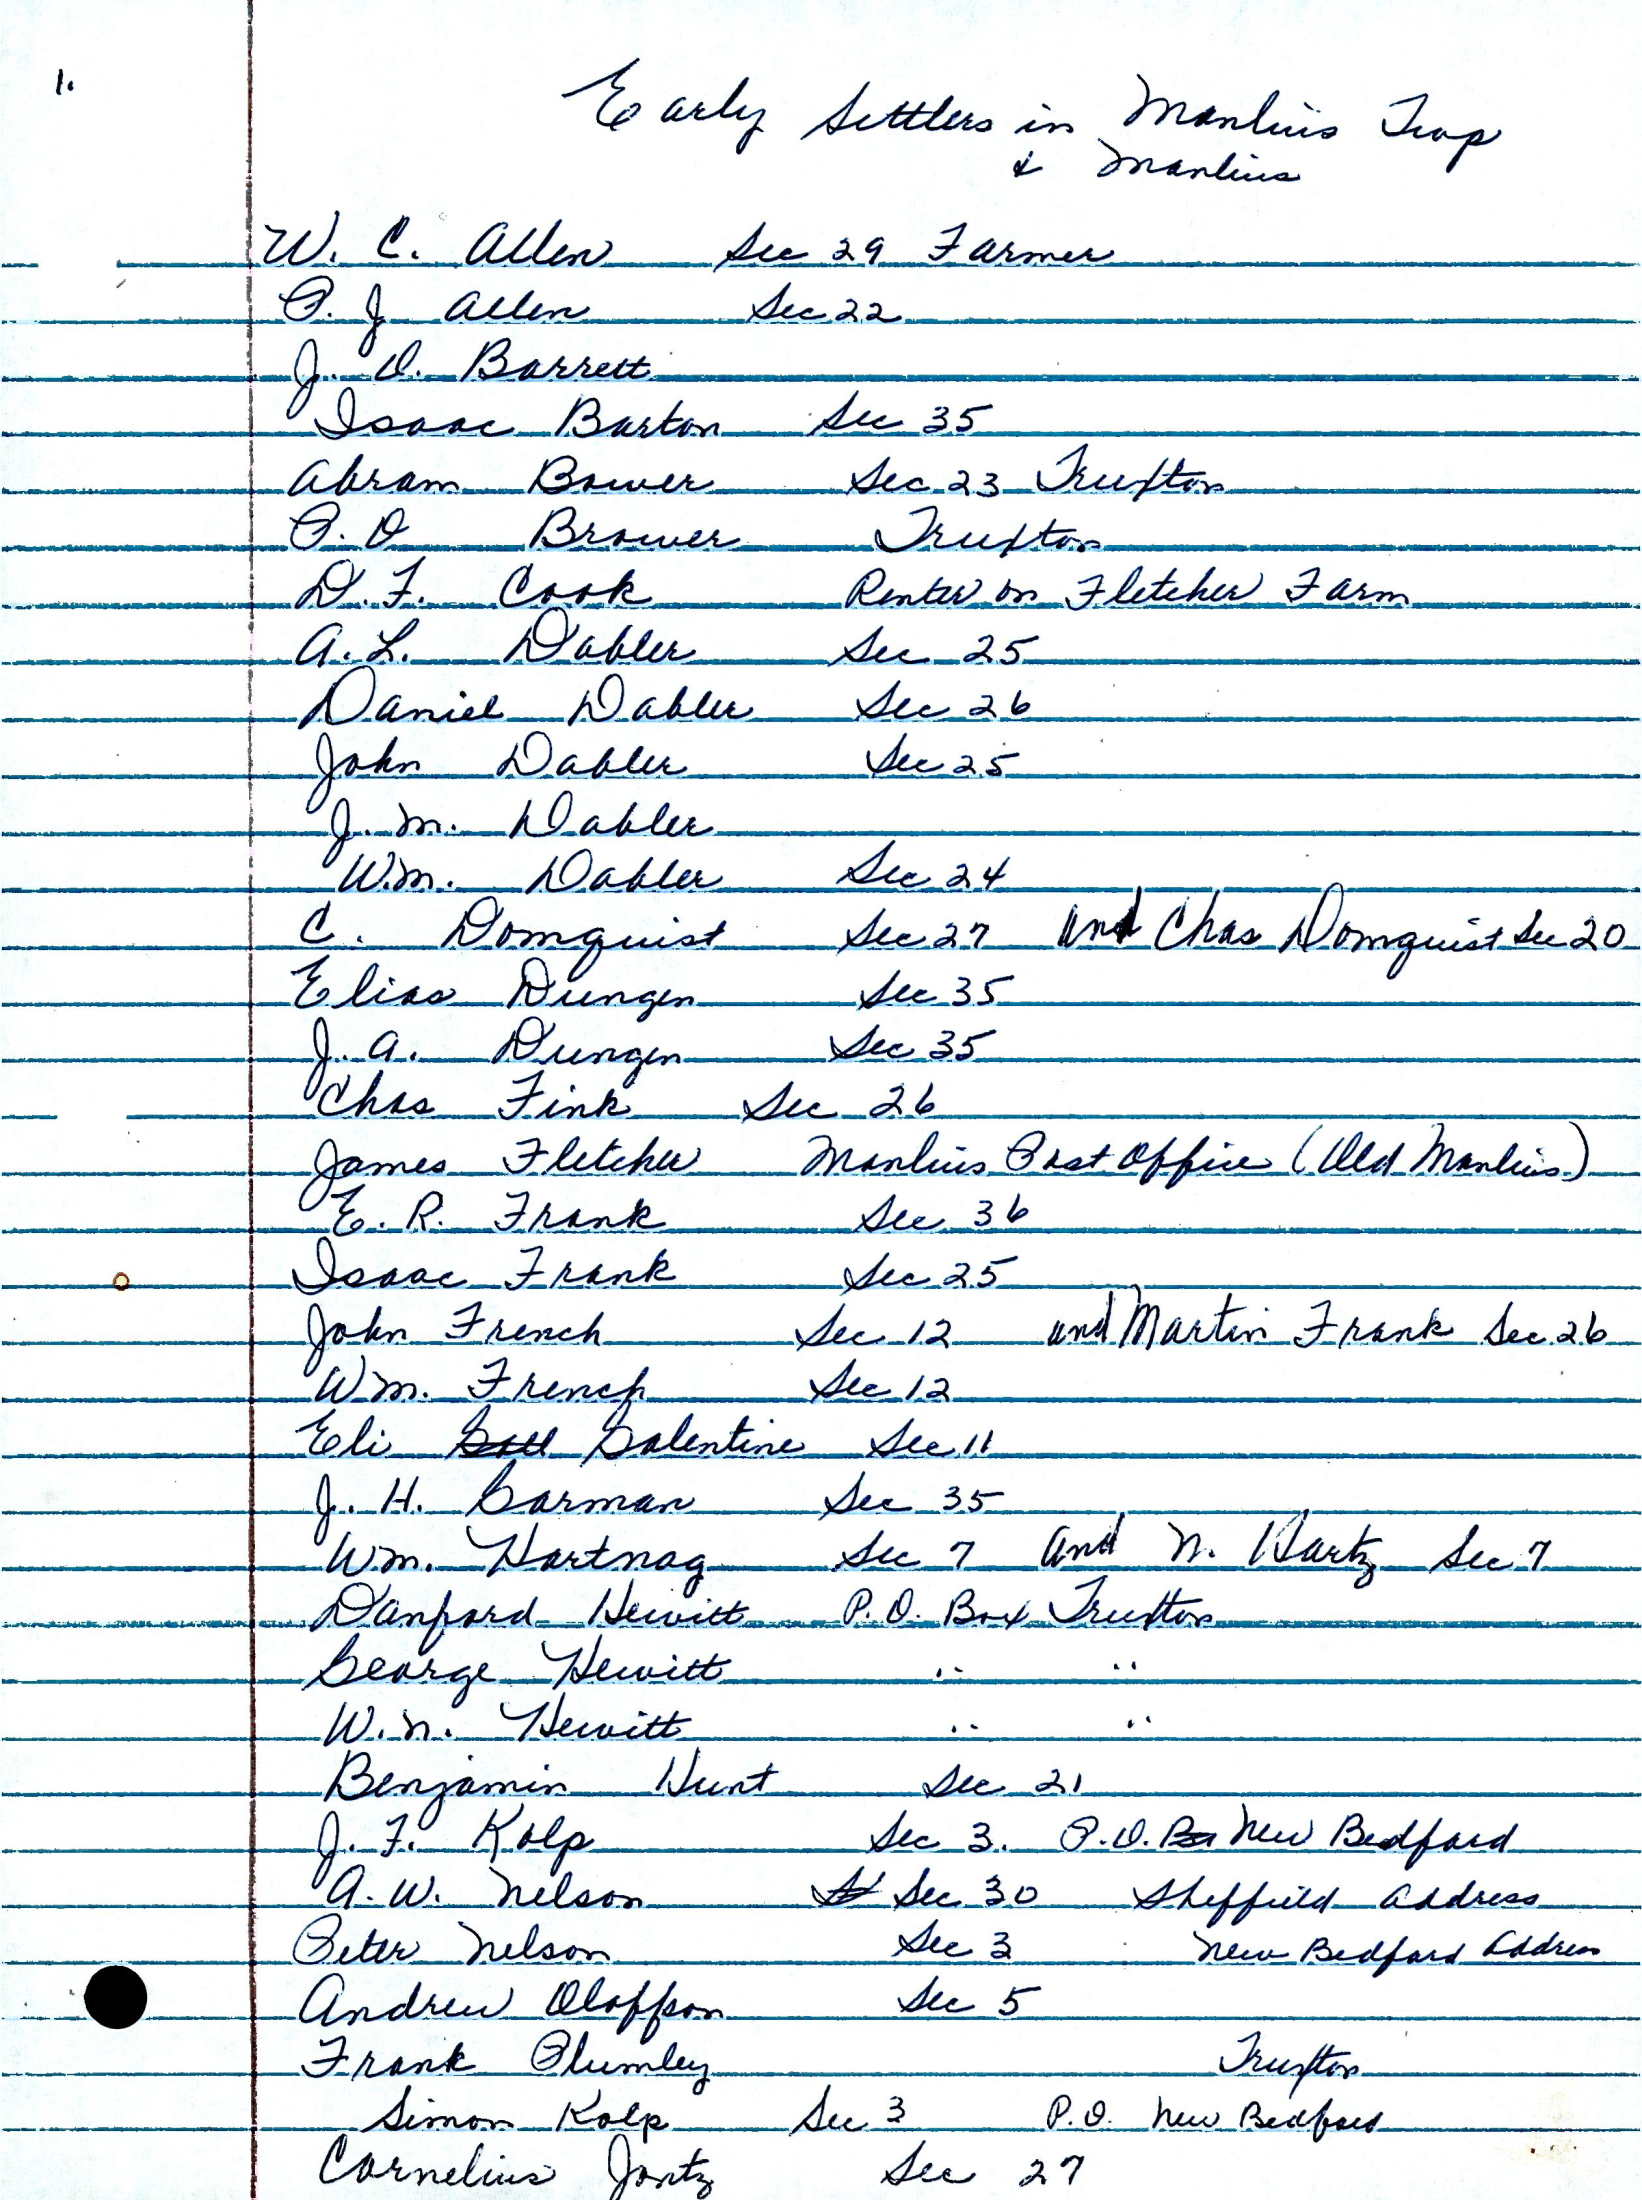 1.
Early Settlers in Manlius Twp
& Manlius
W. C. Allen Sec 29 Farmer
P. J Allen Sec 22
J. O. Barrett
Isaac Barton Sec 35
Abram Bower Sec 23 Truxton
P. O Brower Truxton
D. F. Cook Renter on Fletcher Farm
A. L. Dabler Sec 25
Daniel Dabler Sec 26
John Dabler Sec 25
J. M. Dabler
W.m. Dabler Sec 24
C. Domquist Sec 27 and Chas Domquist Sec 20
Elias Dungen Sec 35
J. A. Dungen Sec 35
Chas Fink Sec 26
James Fletcher Manlius Post Office (Old Manlius)
E. R. Frank Sec 36
Isaac Frank Sec 25
John French Sec 12 and Martin Frank Sec 26
Wm. French Sec 12
Eli Galentine Sec 11
J. H. Garman Sec 35
Wm. Hartnag Sec 7 and N. Hartz Sec 7
Danford Hewitt P.O. Box Truxton
George Hewitt " "
W. N. Hewitt " "
Benjamin Hunt Sec 21
J. F. Kolp Sec 3. P.O. New Bedford
A. W. Nelson Sec 30 Sheffield Address
Peter Nelson Sec 3 New Bedford Address
Andrew Oloffson Sec 5
Frank Plumley Truxton
Simon Kolp Sec 3 P.O. New Bedford
Cornelius Jontz Sec 27